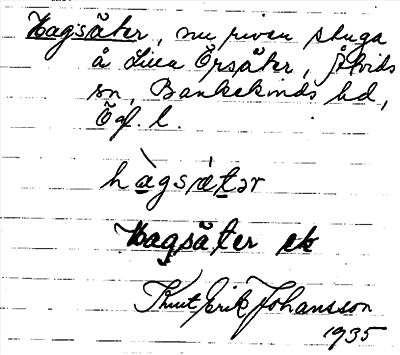 Hagsäter, nu riven stuga
å Lilla Örsäter, Åtvids
sn, Bankekinds hd,
Ög. l.
hàgsä́tər
Hagsäter ek
Knut Erik Johansson
1935